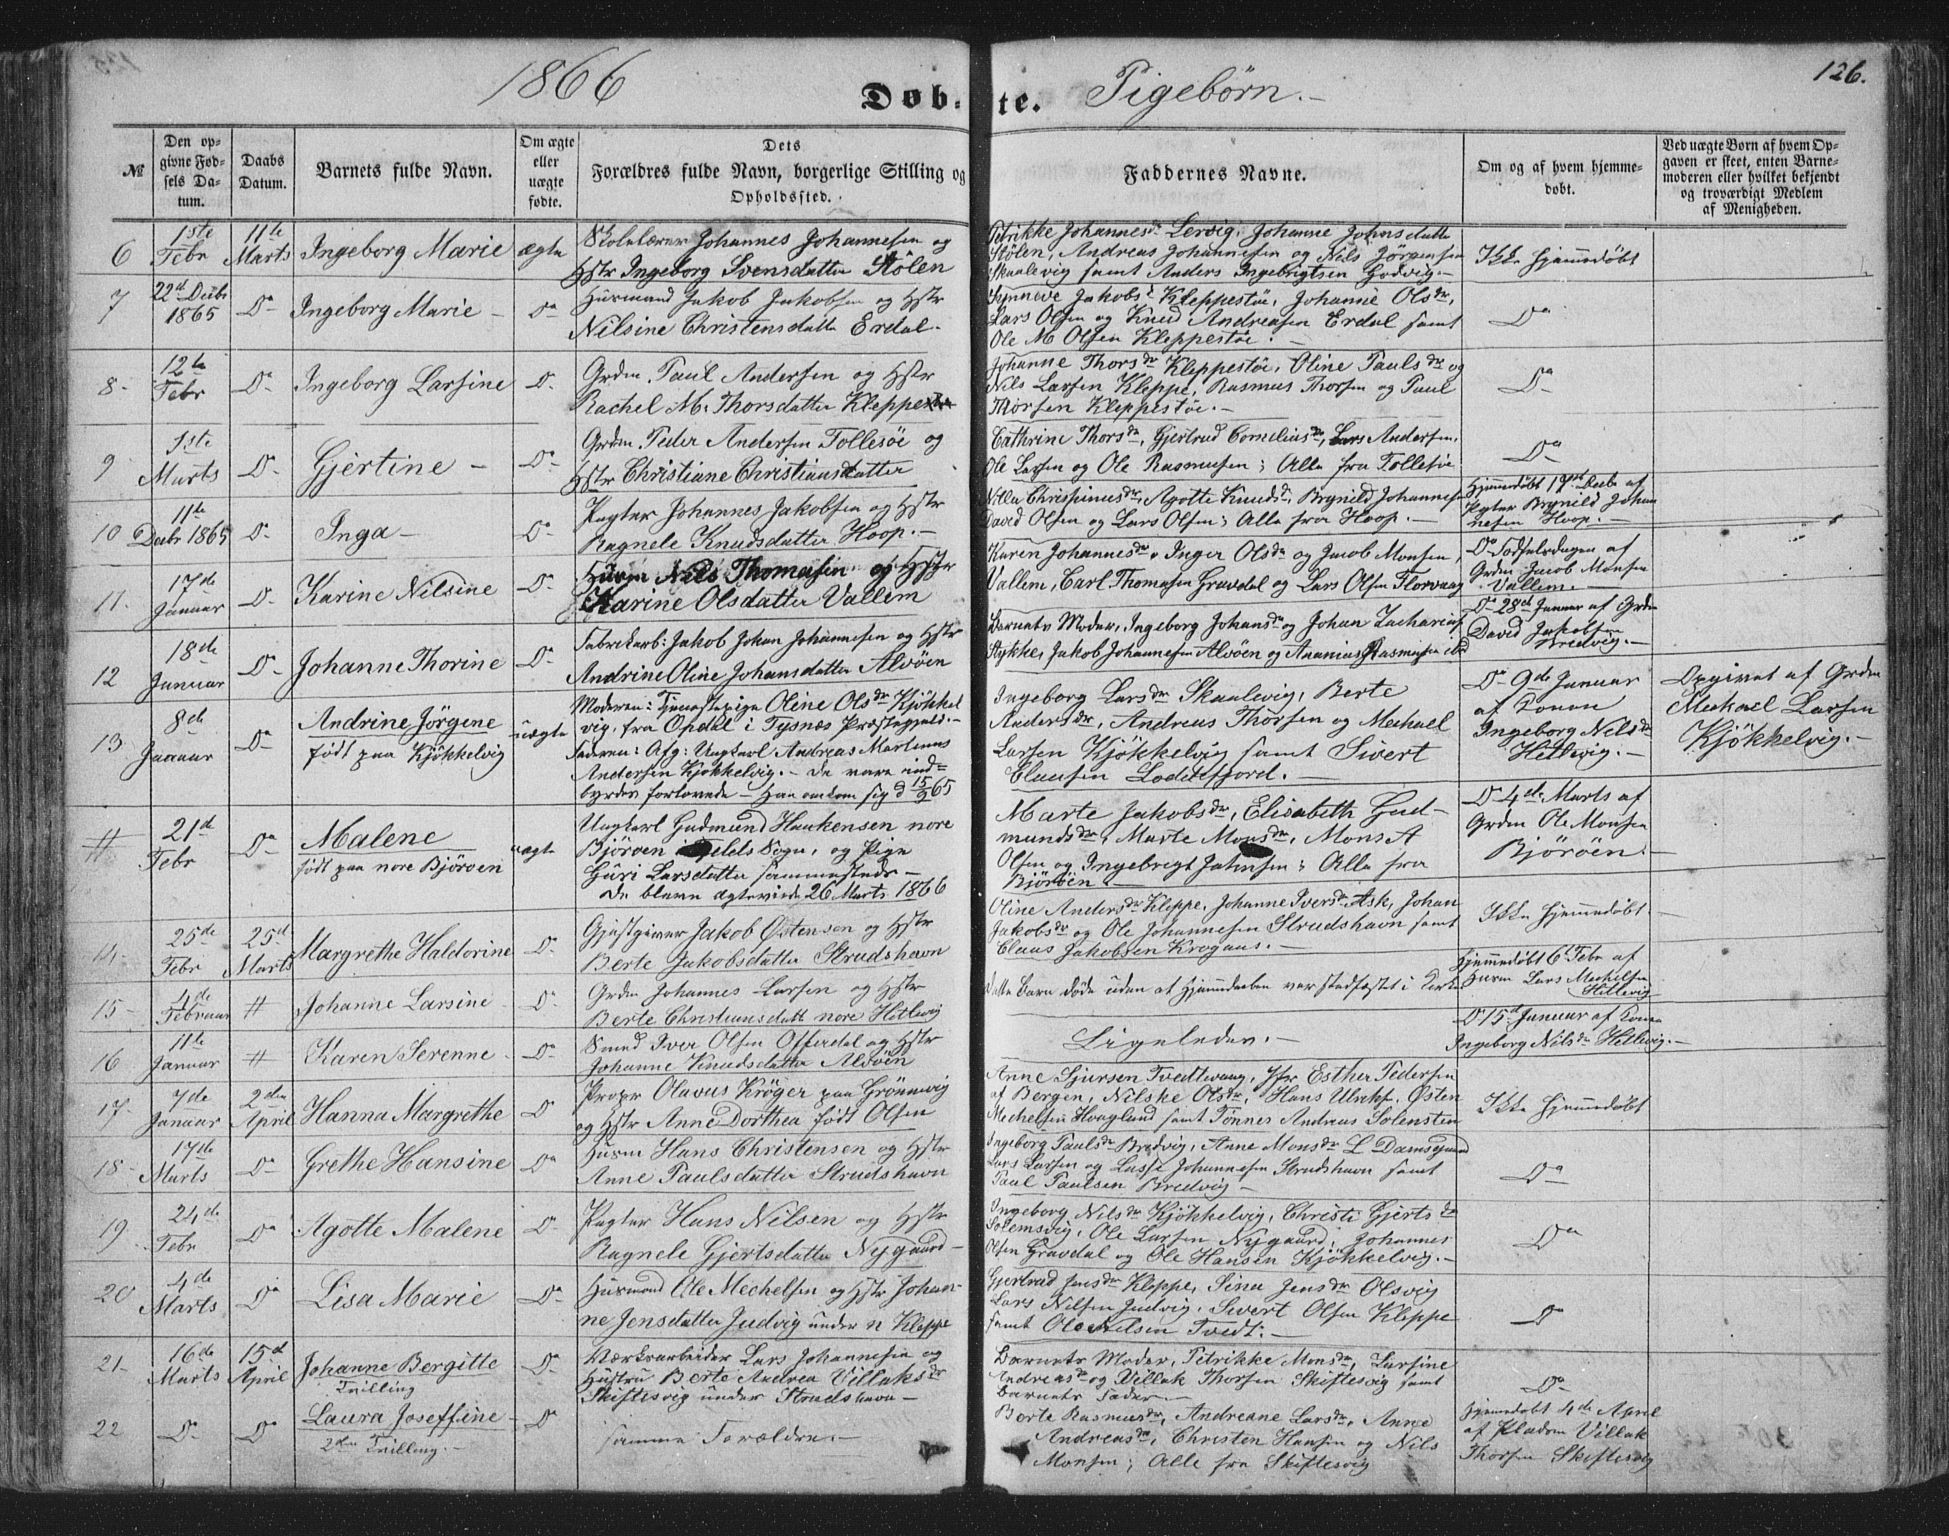 1866
Døbte. Pigebørn.-
126.
№
Den opgivne Fødsels Datum.
Daabs Datum.
Barnets fulde Navn.
Om ægte eller uægte fødte.
Dets Forældres fulde Navn, borgerlige Stilling og Opholdssted.
Faddernes Navne.
Om og af hvem hjemmedøbt.
Ved uægte Børn af hvem Opgaven er skeet, enten Barnemoderen eller hvilket bekjendt og troværdigt Medlem af Menigheden.
6
1ste Febr
11te Marts
Ingeborg Marie
ægte
Skolelærer Johannes Johannesen og
Hstr Ingeborg Svensdatter Stölen
Petrikke Johannesdr Lervig, Johanne Johnsdatter
Stölen, Andreas Johannesen og Nils Jörgensen
Skaalevig samt Anders Ingebrigtsen Godvig.-
Ikke hjemmedöbt
7
22d Decbr 1865
Do
Ingeborg Marie -
Do
Huusmand Jakob Jakobsen og Hstr
Nilsine Christensdatter Erdal.
Synneve Jakobsdr Kleppestöe, Johanne Olsdr,
Lars Olsen og Knud Andreasen Erdal samt
Ole M Olsen Kleppestöe.
Do
8-
12te Febr
Do
Ingeborg Larsine
Do
Grdm. Paul Andersen og Hstr
Rachel M. Thorsdatter Kleppe
Johanne Thorsdr Kleppestöe, Oline Paulsdr og
Nils Larsen Kleppe, Rasmus Thorsen og Paul
Thorsen Kleppestöe.-
Do
9
1ste Marts
Do
Gjertine -
Do
Grdm. Peder Andersen Follesöe og
Hstr Christiane Christiansdatter
Cathrine Thorsdr, Gjertrud Corneliusdr, Lars Andersen,
Ole Larsen og Ole Rasmusen; Alle fra Follesöe
Do
10
11te Decbr 1865
Do
Inga -
Do
Pagter Johannes Jakobsen og Hstr
Ragnele Knudsdatter Hoop.-
Nille Chrispinusdr, Agotte Knudsdr, Brynild Johannesen
David Olsen og Lars Olsen; Alle fra Hoop.-
Hjemmedöbt 17de Decbr af
Pagter Brynild Johan
nesen Hoop.-
11.
17de Januar
Do
Karine Nilsine
Do
Huusm Nils Thomasen og Hstr
Karine Olsdatter Vallem
Karen Johannesdr, Inger Olsdr og Jacob Monsen,
Vallem, Carl Thomasen Gravdal og Lars Olsen Florvaag
Do Födselsdagen af
Grdm Jacob Monsen
Vallem.-
12
18de Januar
Do
Johanne Thorine
Do
Fabrikarb: Jakob Johan Johannesen og Hstr
Andrine Oline Johansdatter Alvöen
Barnets Moder, Ingeborg Johansdr og Johan Zacharias
Stykke, Jakob Johannesen Alvöen og Ananias Rasmusen ibd
Do 28de Januar af Grdm
David Jakobsen
Bredvig.-
13.
8de Januar
Do
Andrine Jörgene
födt paa Kjökkelvig
uægte
Moderen: Tjenestepige Oline Olsdr Kjökkel
vig, fra Opdal i Tysnæs Præstegjæld.-
Faderen: Afg: Ungkarl Andreas Martinus
Andersen Kjökkelvig.- De vare ind-
byrdes forlovede - Han omkom sig d 15/9 65
Ingeborg Larsdr Skaalevig, Berte
Andersdr, Andreas Thorsen og Mechael
Larsen Kjökkelvig samt Sivert
Clausen Loddefjord.
Do 9de Januar
af Konen
Ingeborg Nilsdr
Hetlevig.-
Opgivet af Grdm
Mechael Larsen
Kjökkelvig.-
#
21d Febr
Do
Malene
födt paa nore Björöen
uægte
Ungkarl Gudmund Haakensen nore
Björöen Fjelds Sogn, og Pige
Guri Larsdatter sammesteds -
De bleve ægteviede 26 Marts 1866
Marte Jakobsdr, Elisabeth Gud-
mundsdr, Marte Monsdr, Mons A
Olsen og Ingebrigt Johnsen; Alle fra
Björöen.
Do 4de Marts af
Grdm Ole Monsen
Björöen.
14-
25de Febr
25d Marts
Margrethe Haldorine
Do
Gjæstgiver Jakob Østensen og Hstr
Berte Jakobsdatter Strudshavn
Oline Andersdr Kleppe, Johanne Iversdr Ask, Johan
Jakobsdr og Ole Johannesen Strudshavn samt
Claus Jakobsen Krogaas.-
Ikke hjemmedöbt.
15-
4de Februar
#
Johanne Larsine
Do
Grdm Johannes Larsen og Hstr
Berte Christiansdatt nore Hetlevig
Dette Barn döde uden at Hjemmedaaben var stadfæstet i Kirke
Hjemmedöbt 6 Febr af
Huusm Lars Mechelsen
Hetlevig
16
11te Januar
#
Karen Serenne
Do
Smed Iver Olsen Offerdal og Hstr
Johanne Knudsdatter Alvöen
Ligeledes.-
Do 15d Januar af Konen
Ingeborg Nilsdr Hetlevig.-
17-
7de Januar
2den April
Hanna Margrethe
Do
Propr Olavus Kröger paa Grönnevig
og Hstr Anne Dorthea födt Olsen
Anne Sjursen Tvedtevaag, Jfr Esther Pedersen
af Bergen, Nilske Olsdr, Hans Ulrik, Østen
Mechelsen Haagland samt Tönnes Andreas Solensten
Ikke hjemmedöbt
18-
17de Marts
Do
Grethe Hansine
Do
Huusm Hans Christensen og Hstr
Anne Paulsdatter Strudshavn
Ingeborg Paulsdr Bredvig, Anne Monsdr L Damsgaard
Lars Larsen og Lasse Johannesen Strudshavn samt
Paul Paulsen Bredvig -
Do
19.
24de Febr
Do
Agotte Malene
Do
Pagter Hans Nilsen og Hstr
Ragnele Gjertsdatter Nygaard -
Ingeborg Nilsdr Kjökkelvig, Christi Gjertsdr
Solemsvig, Ole Larsen Nygaard, Johannes
Olsen Gravdal og Ole Hansen Kjökkelvig.-
Do
20
4de Marts
Do
Lisa Marie
Do
Huusmand Ole Mechelsen og Hstr Johan-
ne Jensdatter Judvig under n Kleppe
Gjertrud Jensdr Kleppe, Sina Jensdr Olsvig
Lars Nilsen Judvig, Sivert Olsen Kleppe
samt Ole Nilsen Tvedt.-
Do
21-
16de Marts
15d April
Johanne Bergitte
Tvilling
Do
Værksarbeider Lars Johannesen og
Hustru Berte Andrea Villaksdr
Skiftesvig under Strudshavn -
Barnets Moder, Petrikke Monsdr, Larsine
Andreasdr og Villak Thorsen Skiftesvig samt
Barnets Fader -
Do
22
Do
Do
Laura Joseffine
2den Tvilling.-
Do
samme Forældre.-
Berte Rasmusdr, Andreane Larsdr, Anne
Andreasdr, Christen Hansen og Nils
Monsen; Alle fra Skiftesvig
Hjemmedöbt 4de April
af Pladsm Villak
Thorsen Skiftesvig